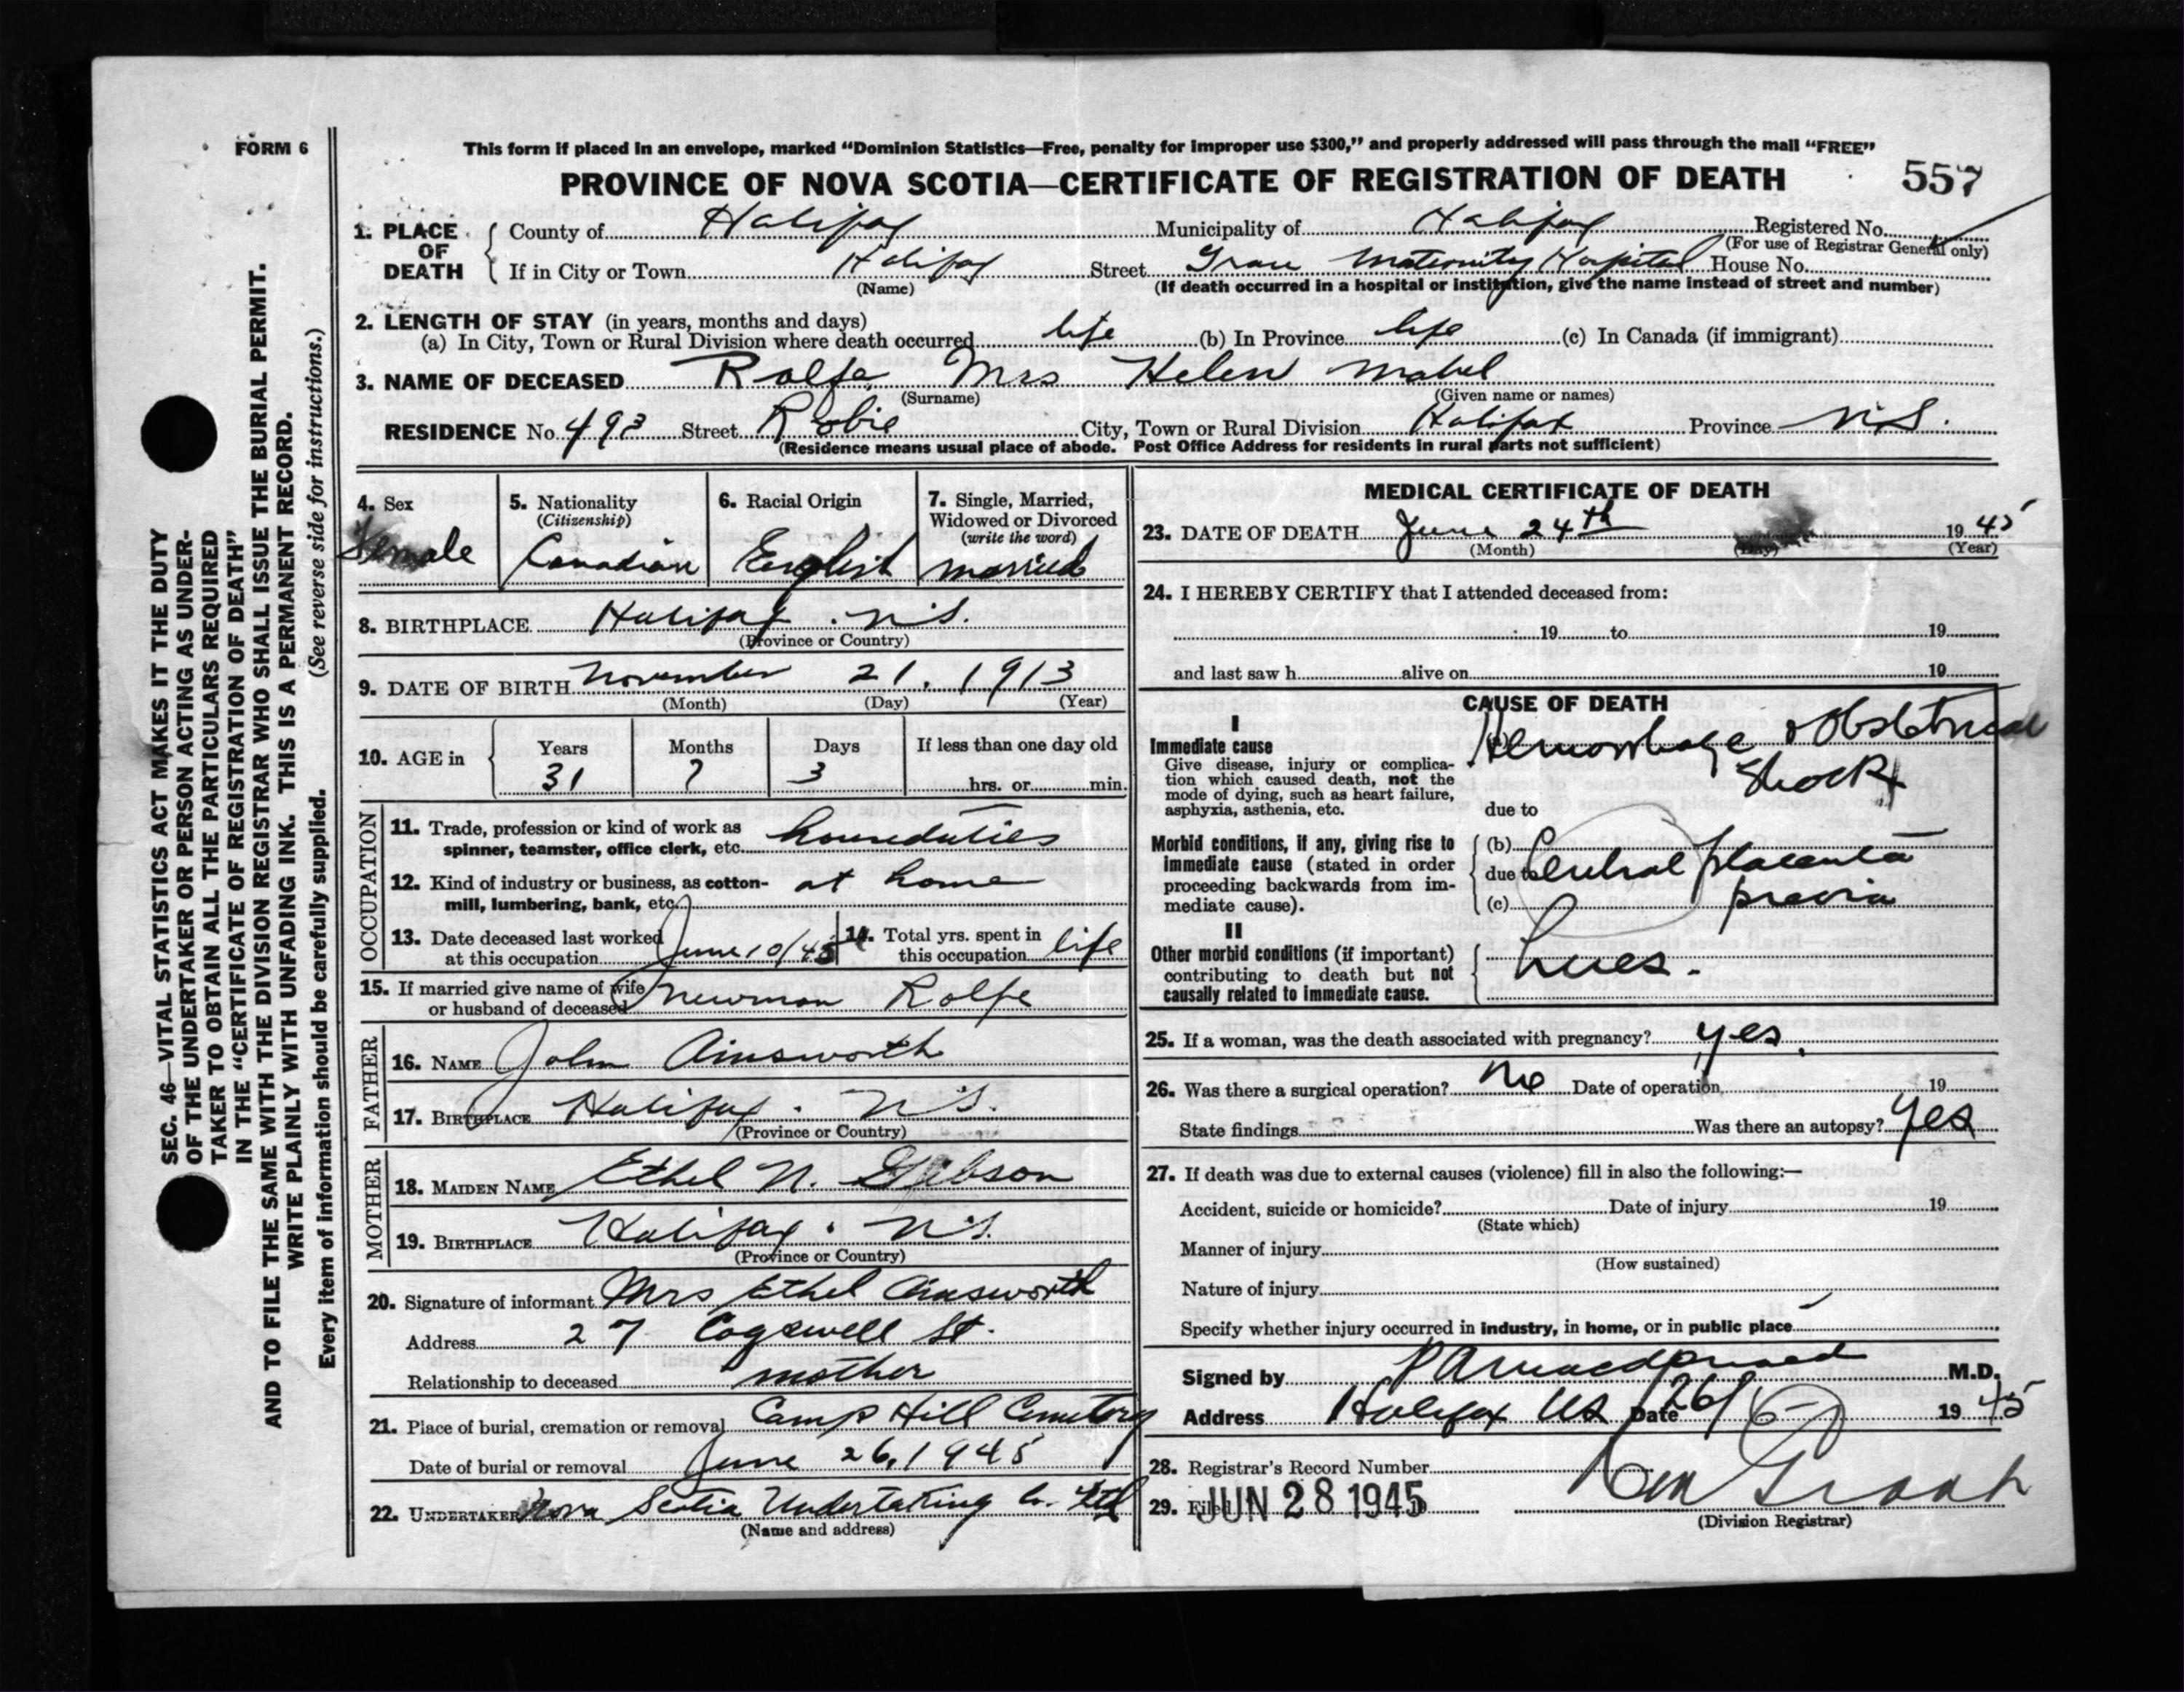 FORM 6
This form if placed in an envelope, marked “Dominion Statistics—Free, penalty for improper use $300,” and properly addressed will pass through the mail “FREE”
PROVINCE OF NOVA SCOTIA—CERTIFICATE OF REGISTRATION OF DEATH
557
1. PLACE OF DEATH
County of Halifax Municipality of Halifax Registered No.
(For use of Registrar General only)
If in City or Town Halifax Street Grace Maternity Hospital House No.
(Name) (If death occurred in a hospital or institution, give the name instead of street and number)
2. LENGTH OF STAY (in years, months and days)
(a) In City, Town or Rural Division where death occurred life (b) In Province life (c) In Canada (if immigrant)
3. NAME OF DECEASED Rolfe Mrs Helen Mabel
(Surname) (Given name or names)
RESIDENCE No. 493 Street Robie City, Town or Rural Division Halifax Province N.S.
(Residence means usual place of abode. Post Office Address for residents in rural parts not sufficient)
SEC. 46—VITAL STATISTICS ACT MAKES IT THE DUTY
OF THE UNDERTAKER OR PERSON ACTING AS UNDER-
TAKER TO OBTAIN ALL THE PARTICULARS REQUIRED
IN THE “CERTIFICATE OF REGISTRATION OF DEATH”
AND TO FILE THE SAME WITH THE DIVISION REGISTRAR WHO SHALL ISSUE THE BURIAL PERMIT.
WRITE PLAINLY WITH UNFADING INK. THIS IS A PERMANENT RECORD.
Every item of information should be carefully supplied. (See reverse side for instructions.)
4. Sex
female
5. Nationality
(Citizenship)
Canadian
6. Racial Origin
English
7. Single, Married,
Widowed or Divorced
(write the word)
married
8. BIRTHPLACE Halifax. N.S.
(Province or Country)
9. DATE OF BIRTH November 21. 1913
(Month) (Day) (Year)
10. AGE in
Years Months Days If less than one day old
31 7 3 hrs. or min.
OCCUPATION
11. Trade, profession or kind of work as
spinner, teamster, office clerk, etc. houseduties
12. Kind of industry or business, as cotton-
mill, lumbering, bank, etc. at home
13. Date deceased last worked
at this occupation June 10/45
14. Total yrs. spent in
this occupation life
15. If married give name of wife
or husband of deceased Newman Rolfe
FATHER
16. NAME John Ainsworth
17. BIRTHPLACE Halifax. N.S.
(Province or Country)
MOTHER
18. MAIDEN NAME Ethel N. Gibson
19. BIRTHPLACE Halifax. N.S.
(Province or Country)
20. Signature of informant Mrs Ethel Ainsworth
Address 27 Cogswell St.
Relationship to deceased mother
21. Place of burial, cremation or removal Camp Hill Cemetery
Date of burial or removal June 26, 1945
22. UNDERTAKER Nova Scotia Undertaking Co. Ltd
(Name and address)
MEDICAL CERTIFICATE OF DEATH
23. DATE OF DEATH June 24th 1945
(Month) (Day) (Year)
24. I HEREBY CERTIFY that I attended deceased from:
19 to 19
and last saw h alive on 19
CAUSE OF DEATH
I
Immediate cause
Give disease, injury or complica-
tion which caused death, not the
mode of dying, such as heart failure,
asphyxia, asthenia, etc.
Hemorrhage & Obstetrical
Shock
due to
Morbid conditions, if any, giving rise to
immediate cause (stated in order
proceeding backwards from im-
mediate cause).
(b)
due to Central placenta
(c) previa
II
Other morbid conditions (if important)
contributing to death but not
causally related to immediate cause.
Lues.
25. If a woman, was the death associated with pregnancy? yes.
26. Was there a surgical operation? No Date of operation 19
State findings Was there an autopsy? Yes
27. If death was due to external causes (violence) fill in also the following:—
Accident, suicide or homicide? Date of injury 19
(State which)
Manner of injury
(How sustained)
Nature of injury
Specify whether injury occurred in industry, in home, or in public place
Signed by M.D.
Address Halifax NS Date 26/6 1945
28. Registrar's Record Number
29. Filed JUN 28 1945
(Division Registrar)